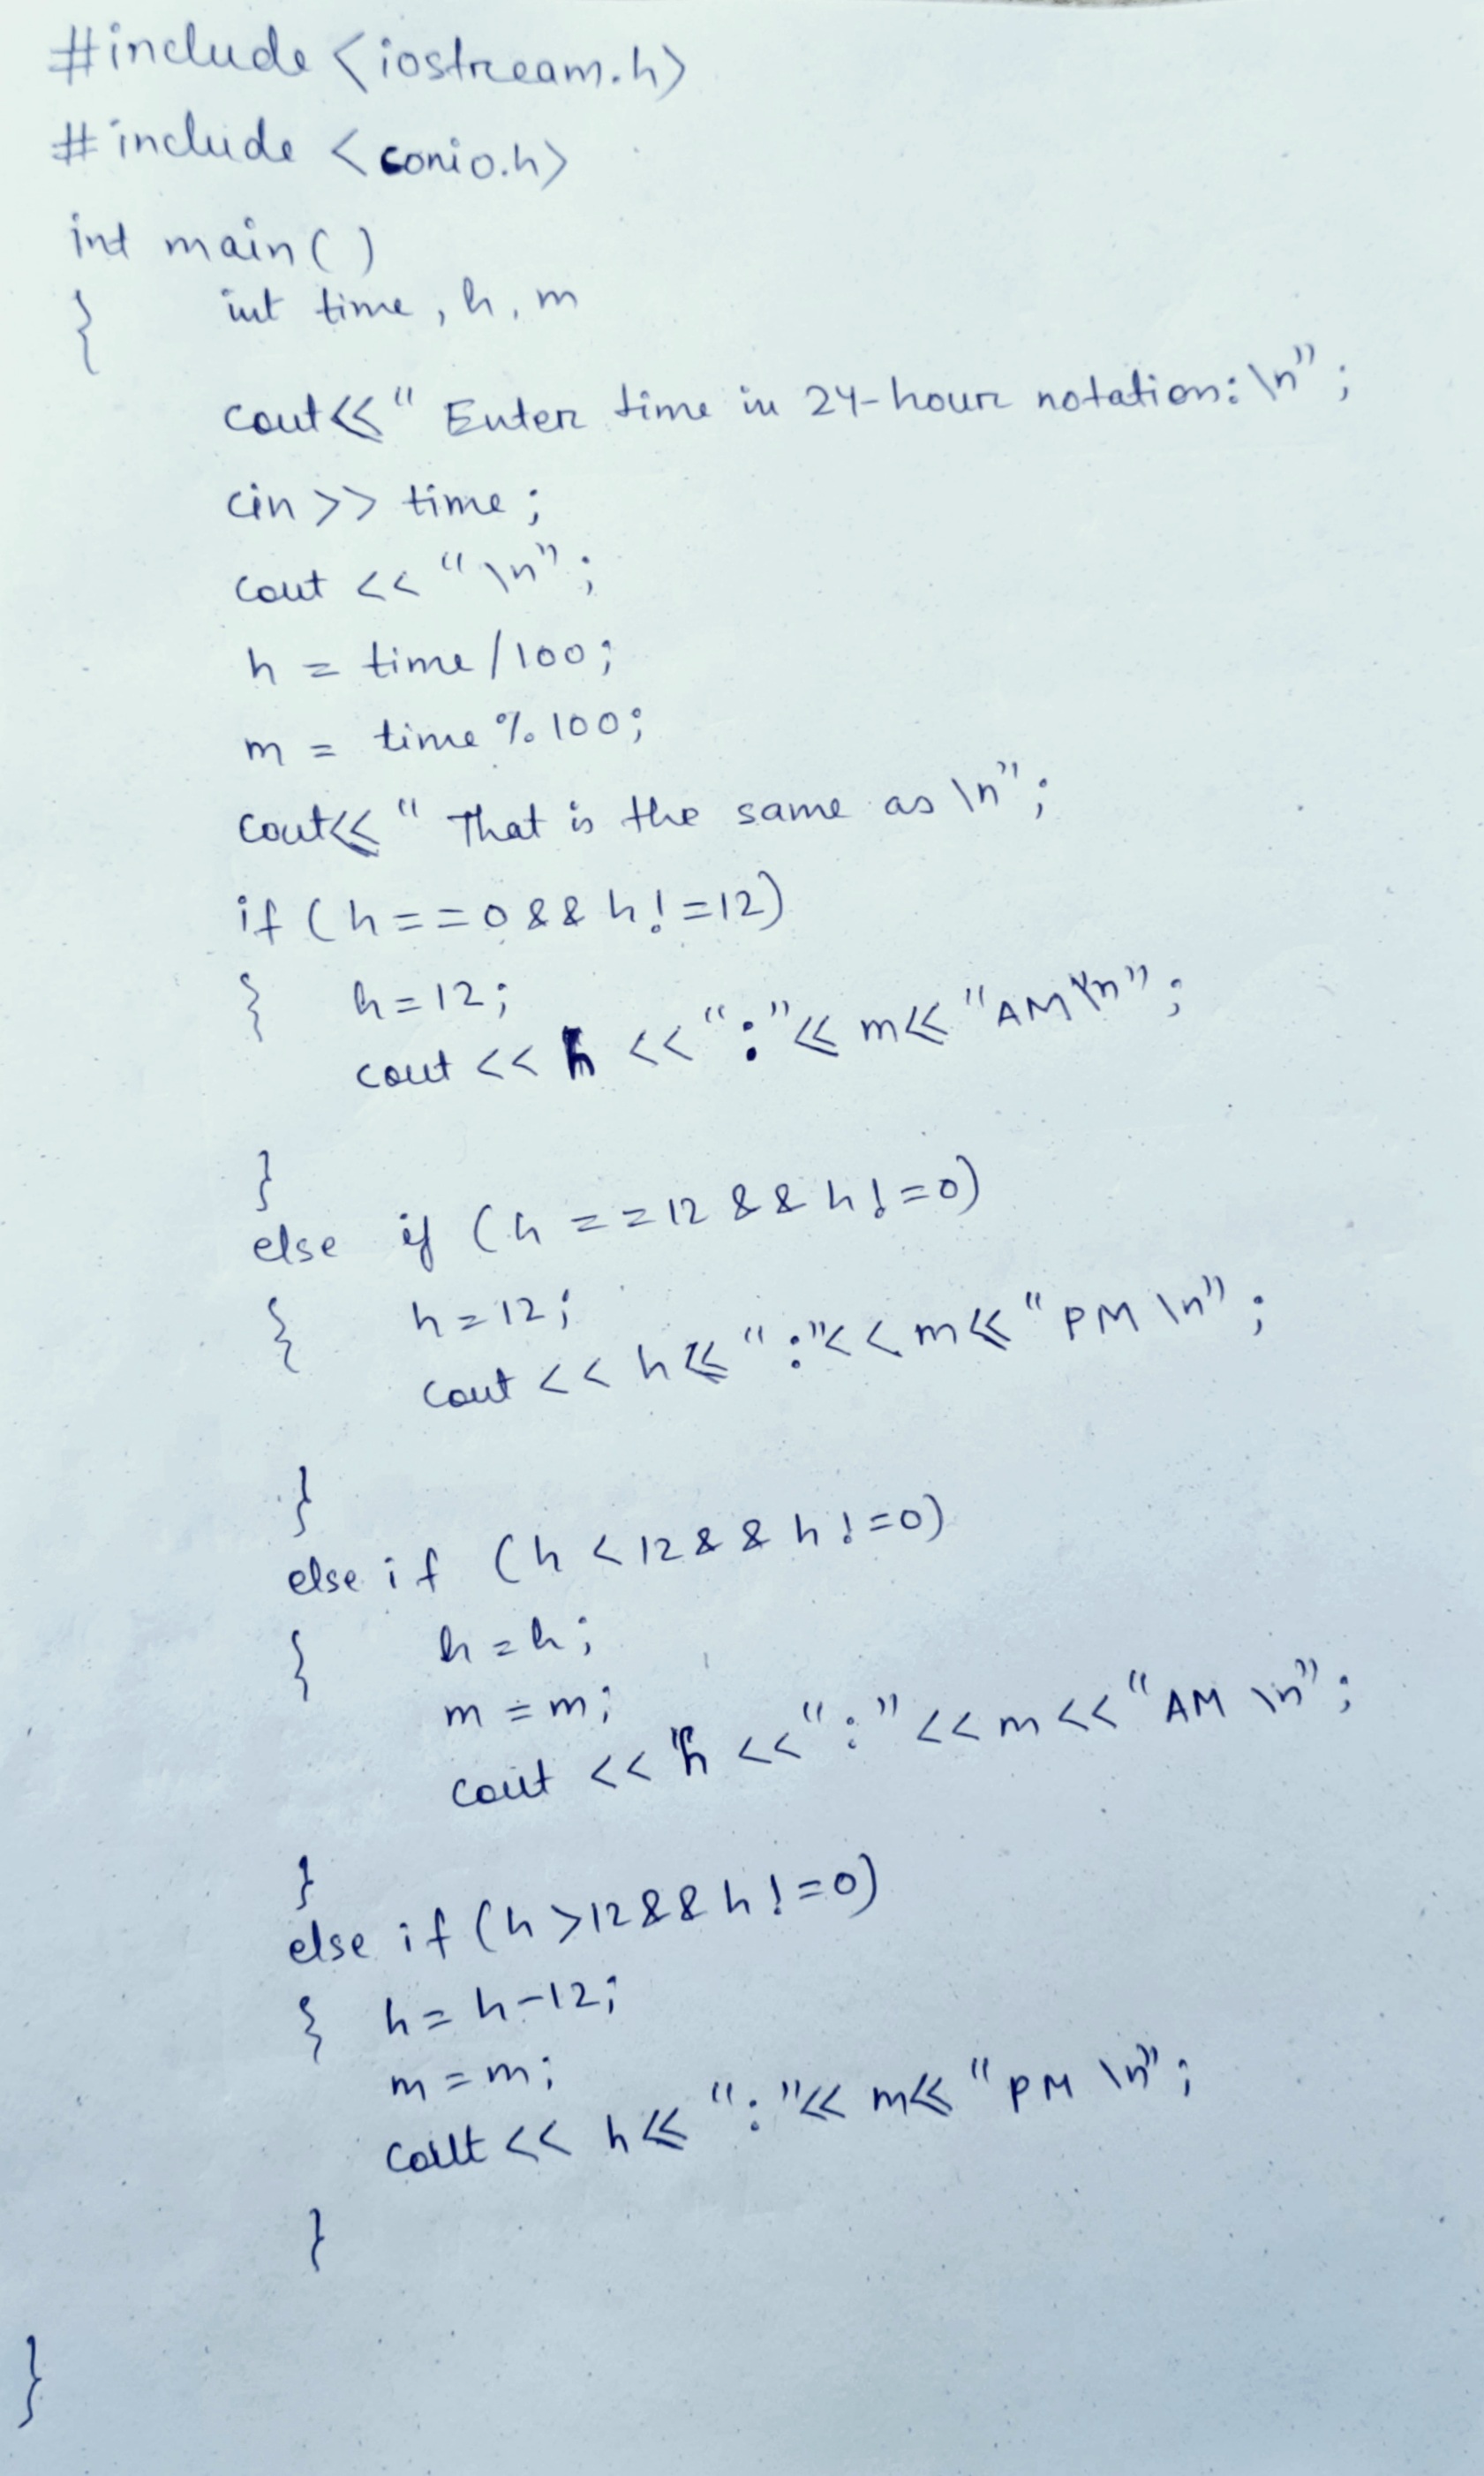 #include <iostream.h>
#include <conio.h>
int main( )
{ int time, h, m
cout<<" Enter time in 24-hour notation: \n";
cin >> time;
cout << "\n";
h = time/100;
m = time % 100;
cout<<" That is the same as \n";
if (h==0 && h!=12)
{ h=12;
cout << h <<":"<< m<< "AM\n";
}
else if (h ==12 && h!=0)
{ h=12;
cout << h<< ":"<< m<< "PM \n";
}
else if (h < 12 && h!=0)
{ h=h;
m=m;
cout << h <<":"<<m<<"AM \n";
}
else if (h >12 && h!=0)
{ h= h-12;
m=m;
cout << h<< ":"<< m<< "PM \n";
}
}